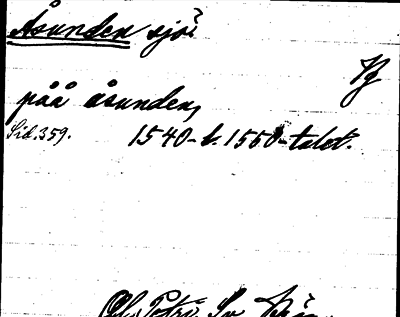 Åsunden sjö
Vg
påå åsunden,
Sid. 359. 1540- b. 1550-talet.
Ol. Petri Sv. Krön.